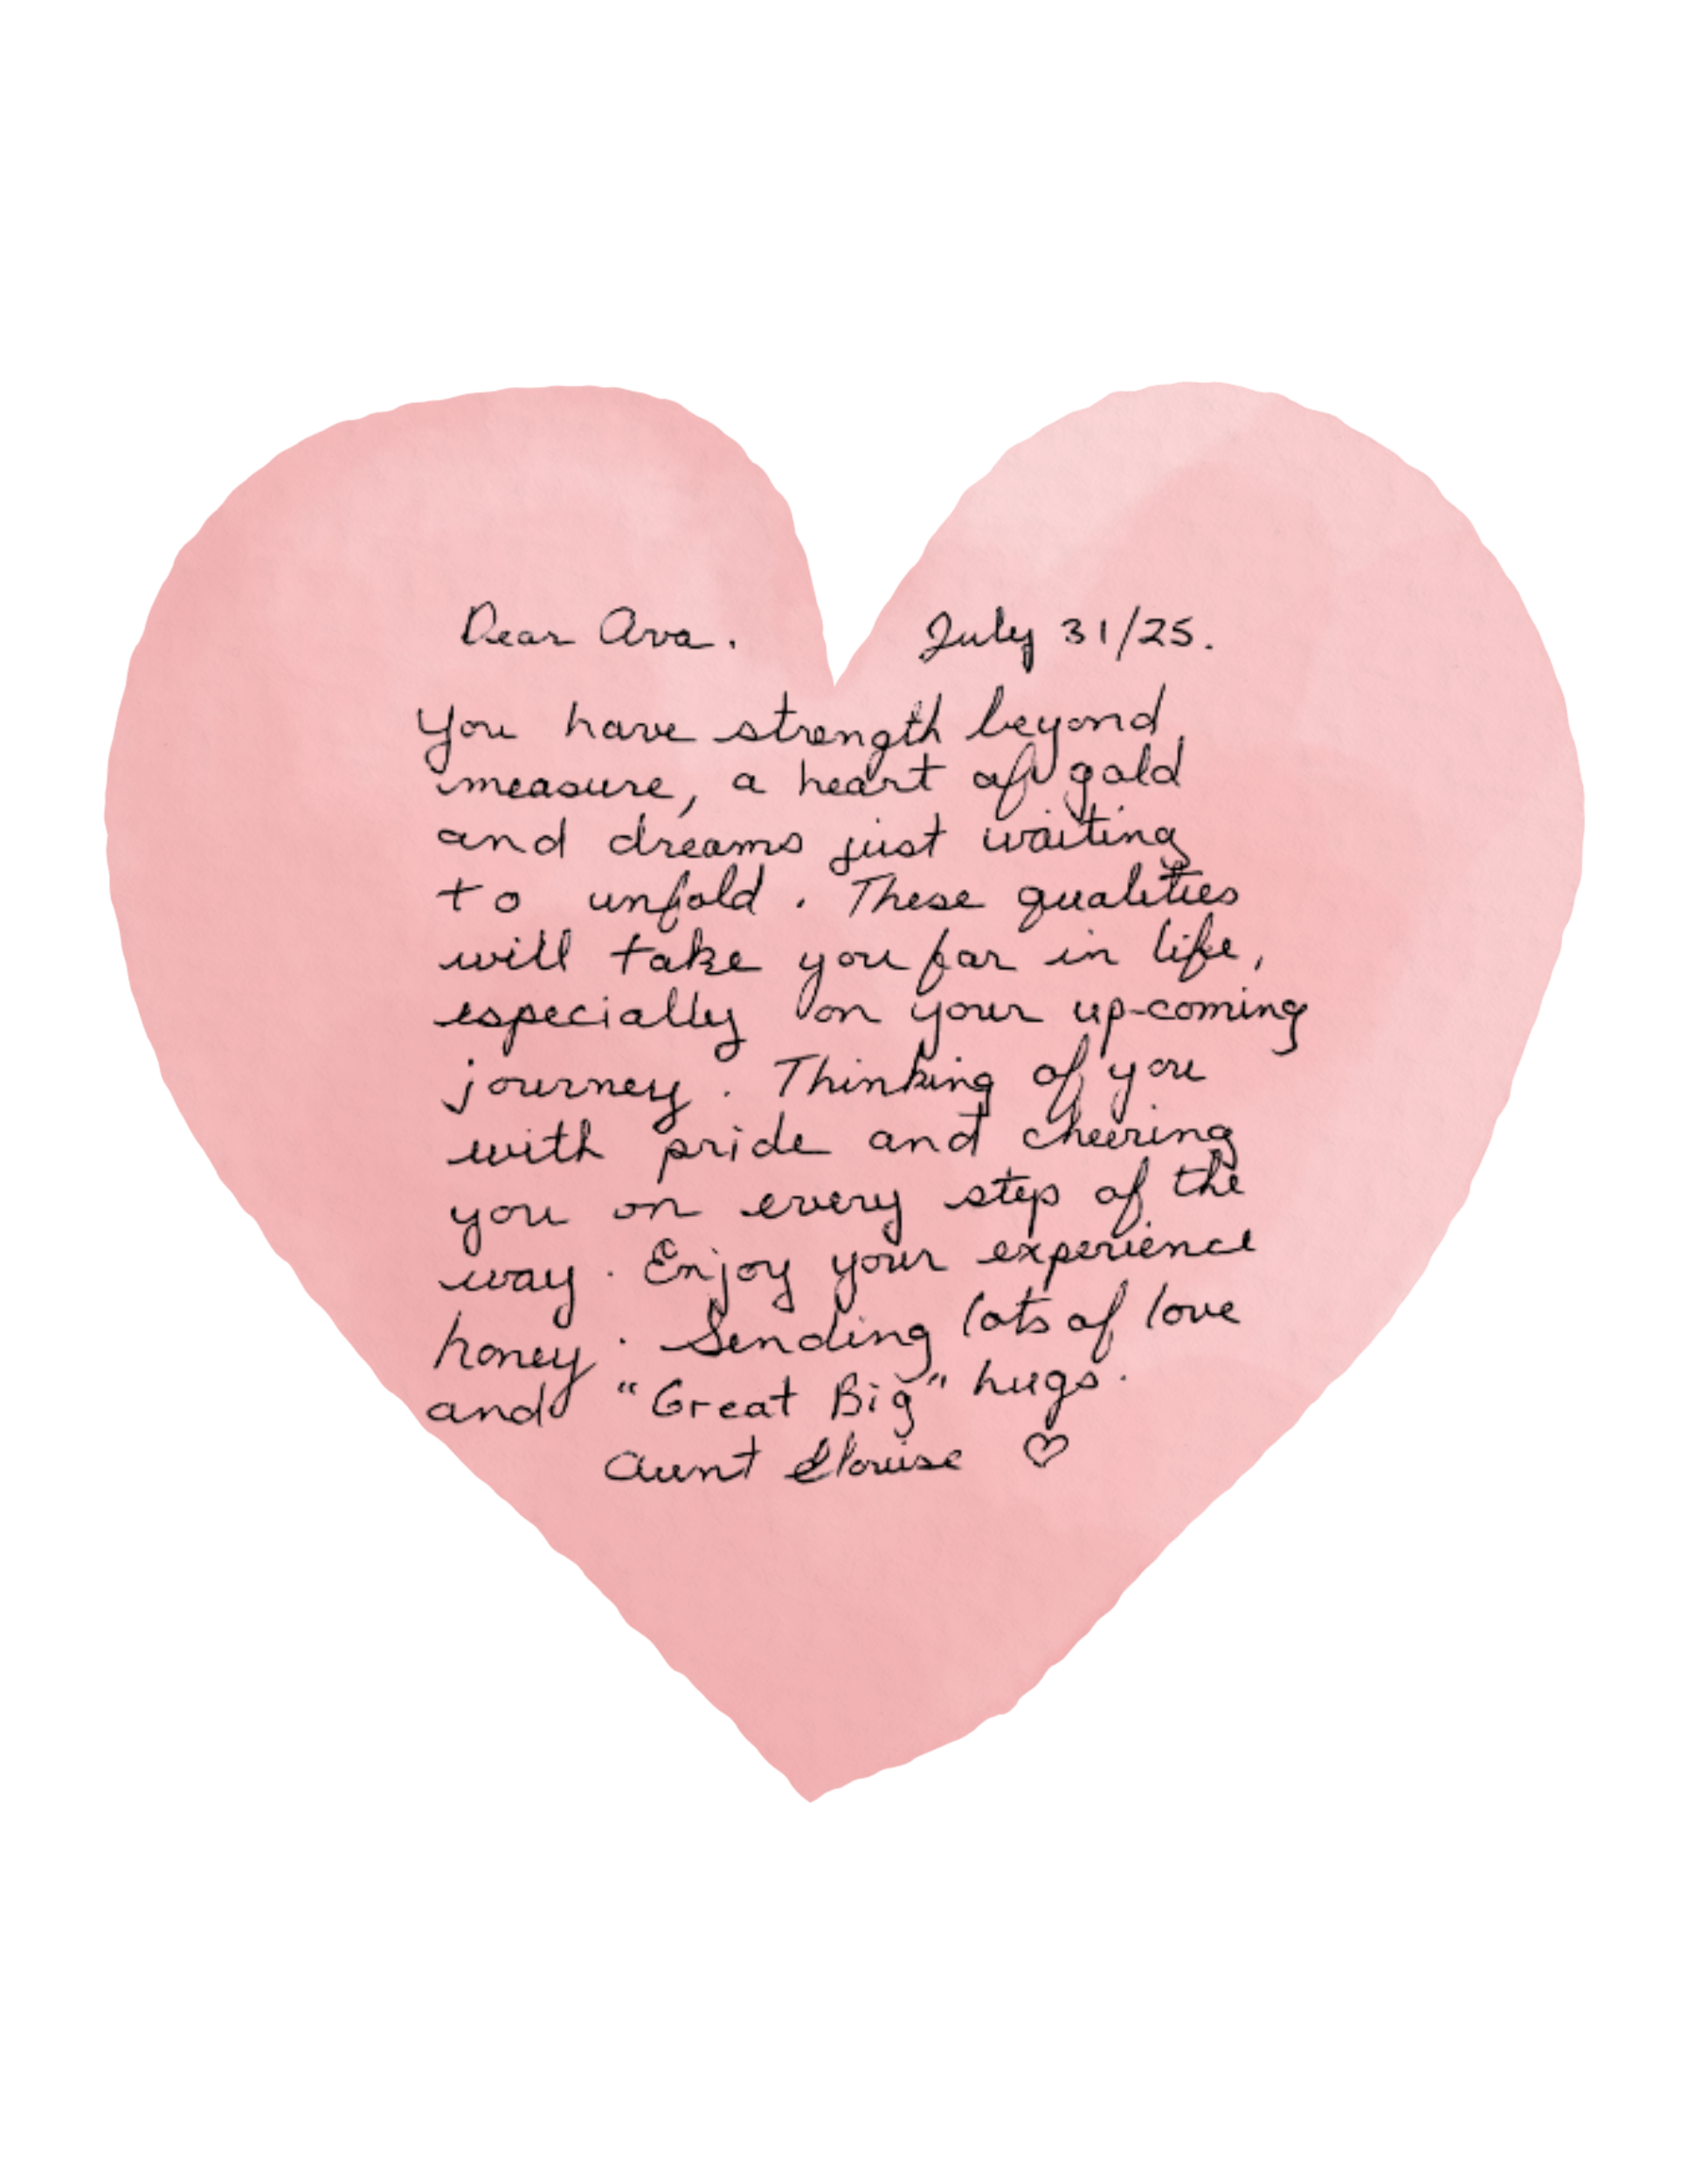 Dear Ava. July 31/25.
You have strength beyond
measure, a heart of gold
and dreams just waiting
to unfold. These qualities
will take you far in life,
especially on your up-coming
journey. Thinking of you
with pride and cheering
you on every step of the
way. Enjoy your experience
honey. Sending lots of love
and "Great Big" hugs.
Aunt Elouise ♡